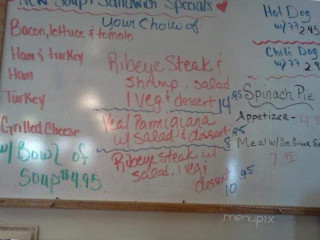 New Soup & Sandwich Specials
Your Choice of
Bacon, lettuce & tomato
Ham & turkey
Ham
Turkey
Grilled Cheese
w/ Bowl of
Soup $4.95
Ribeye Steak &
shrimp, salad
1 veg & dessert 14.95
Veal Parmigiana
w/ salad & dessert
8.95
Ribeye Steak w/
salad, 1 veg &
dessert
10.95
Hot Dog
w/ 2.45
Chili Dog
w/ 2.9
Spinach Pie
Appetizer - 4
Meal w/ Sm Greek
7.95
menupix